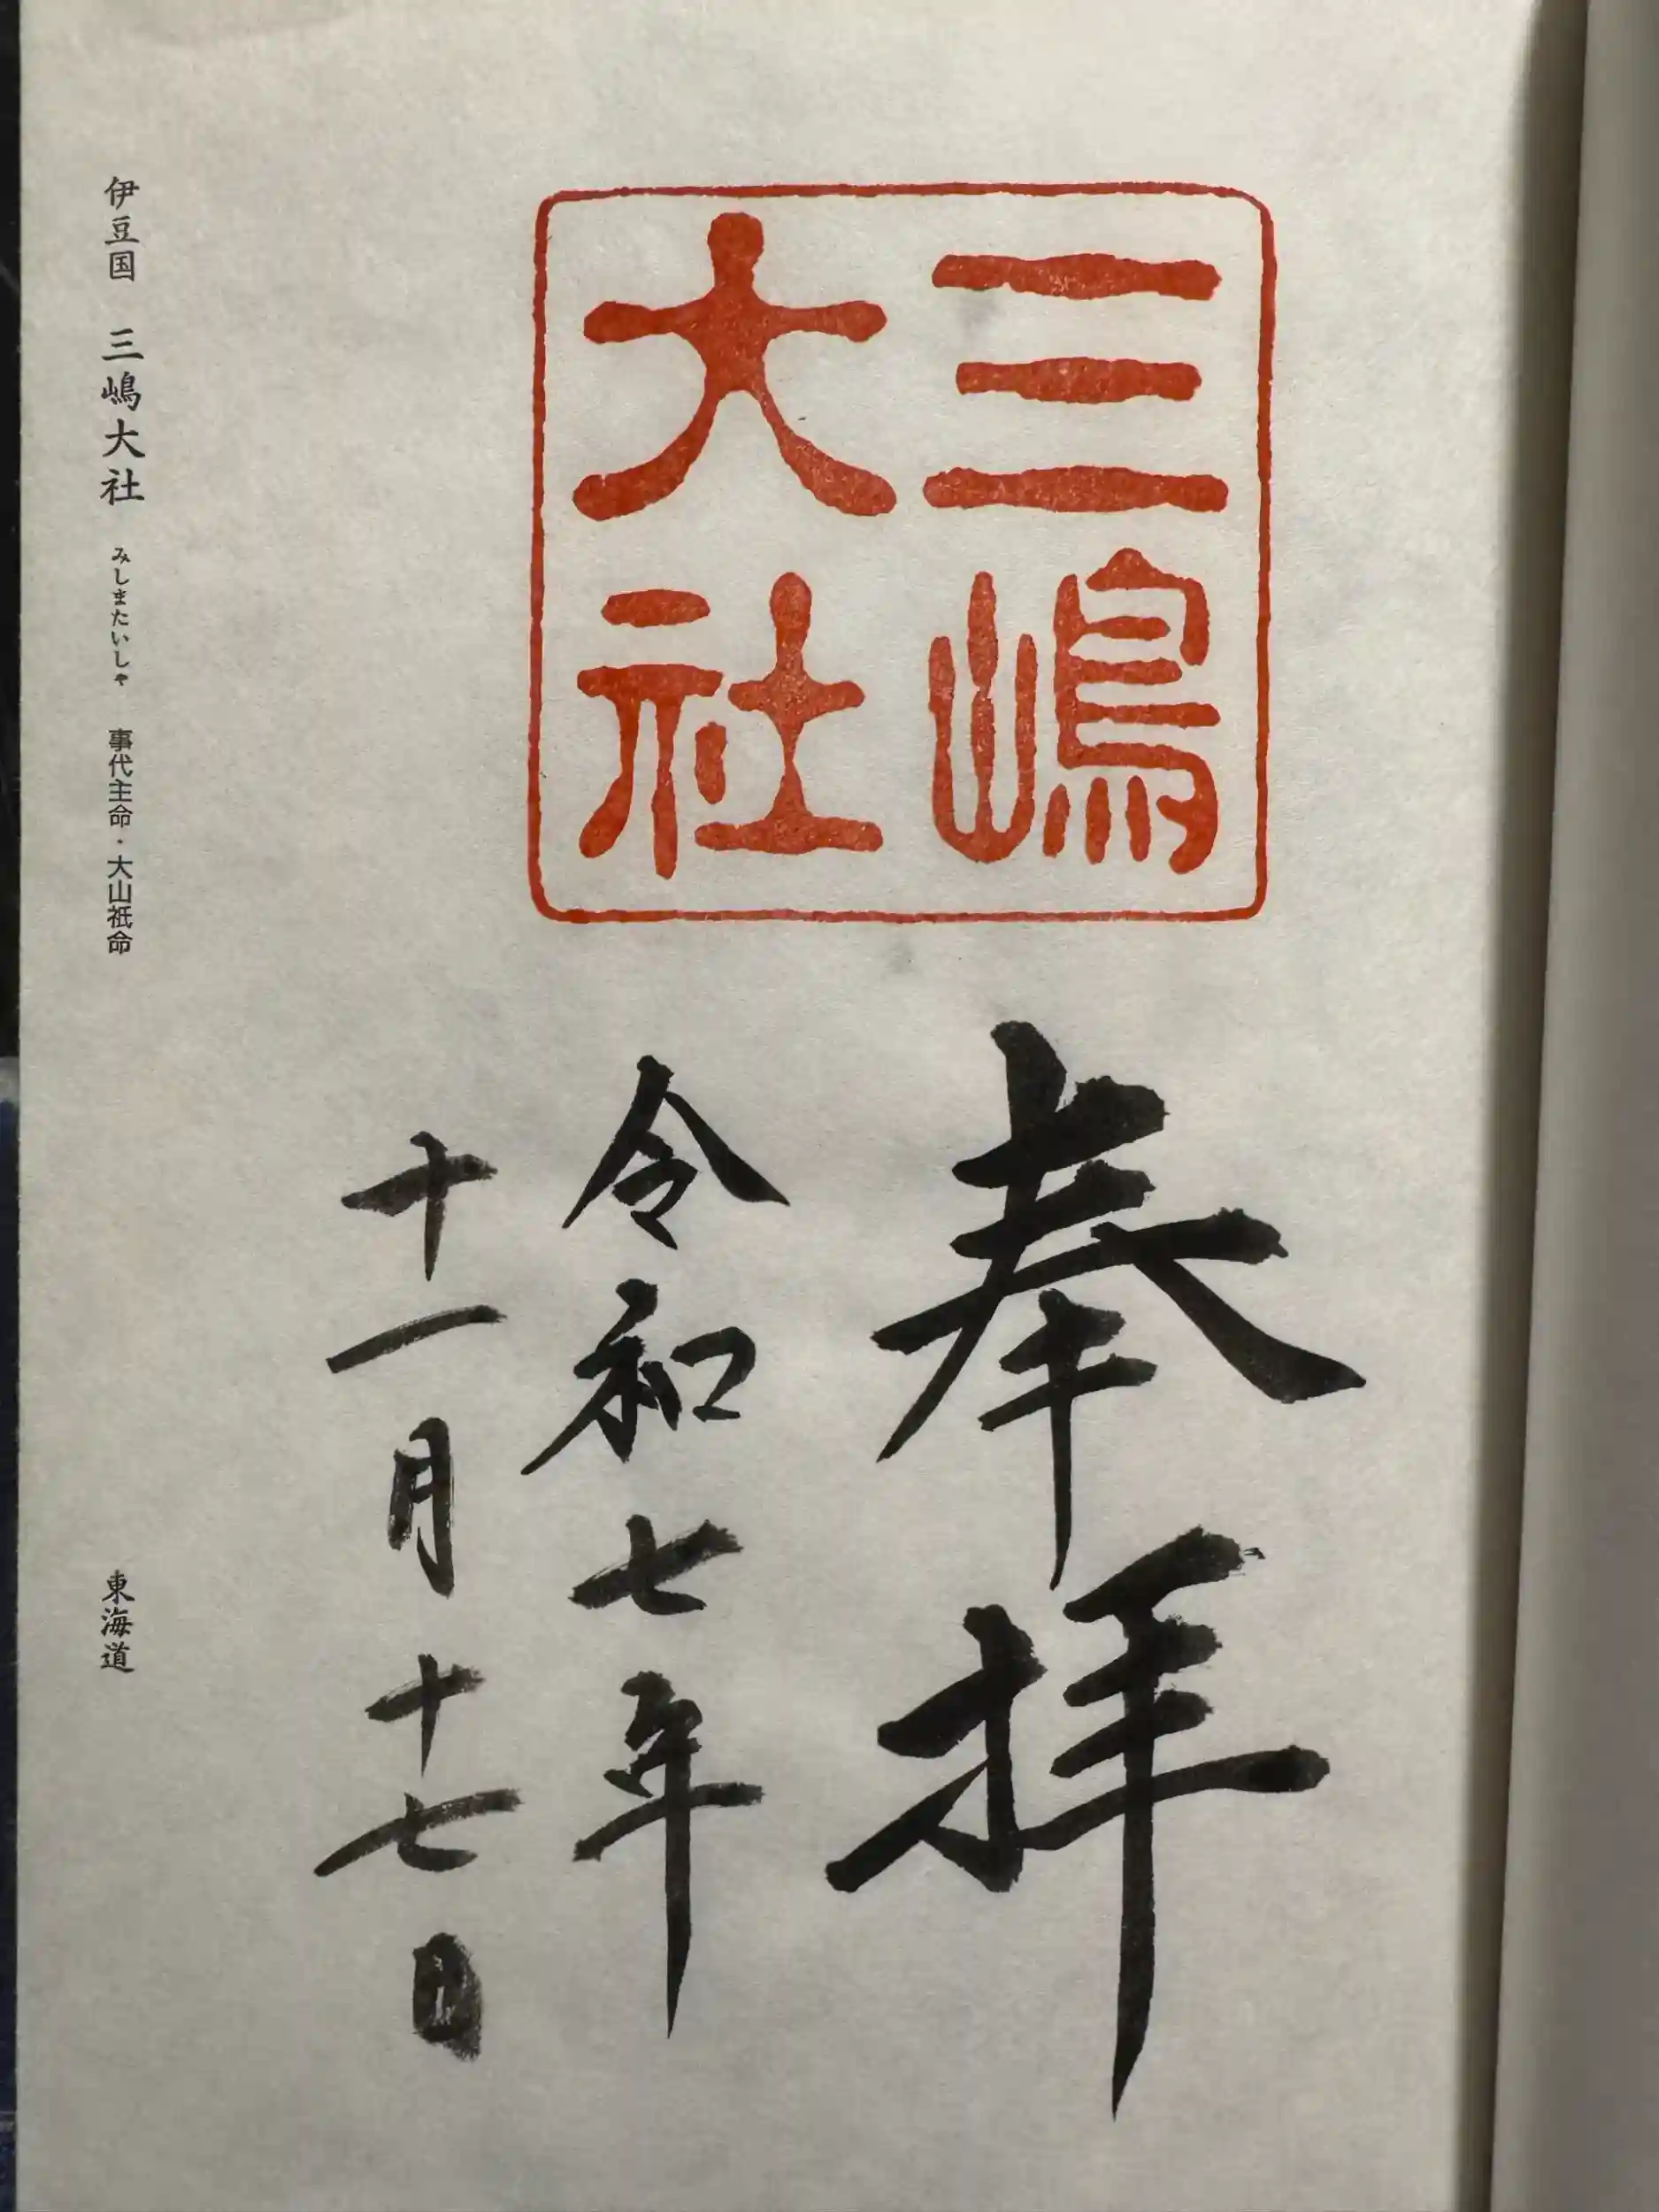 三嶋
大社
奉拝
令和七年
十一月十七日
伊豆国 三嶋大社 みしまたいしゃ 事代主命・大山祇命
東海道